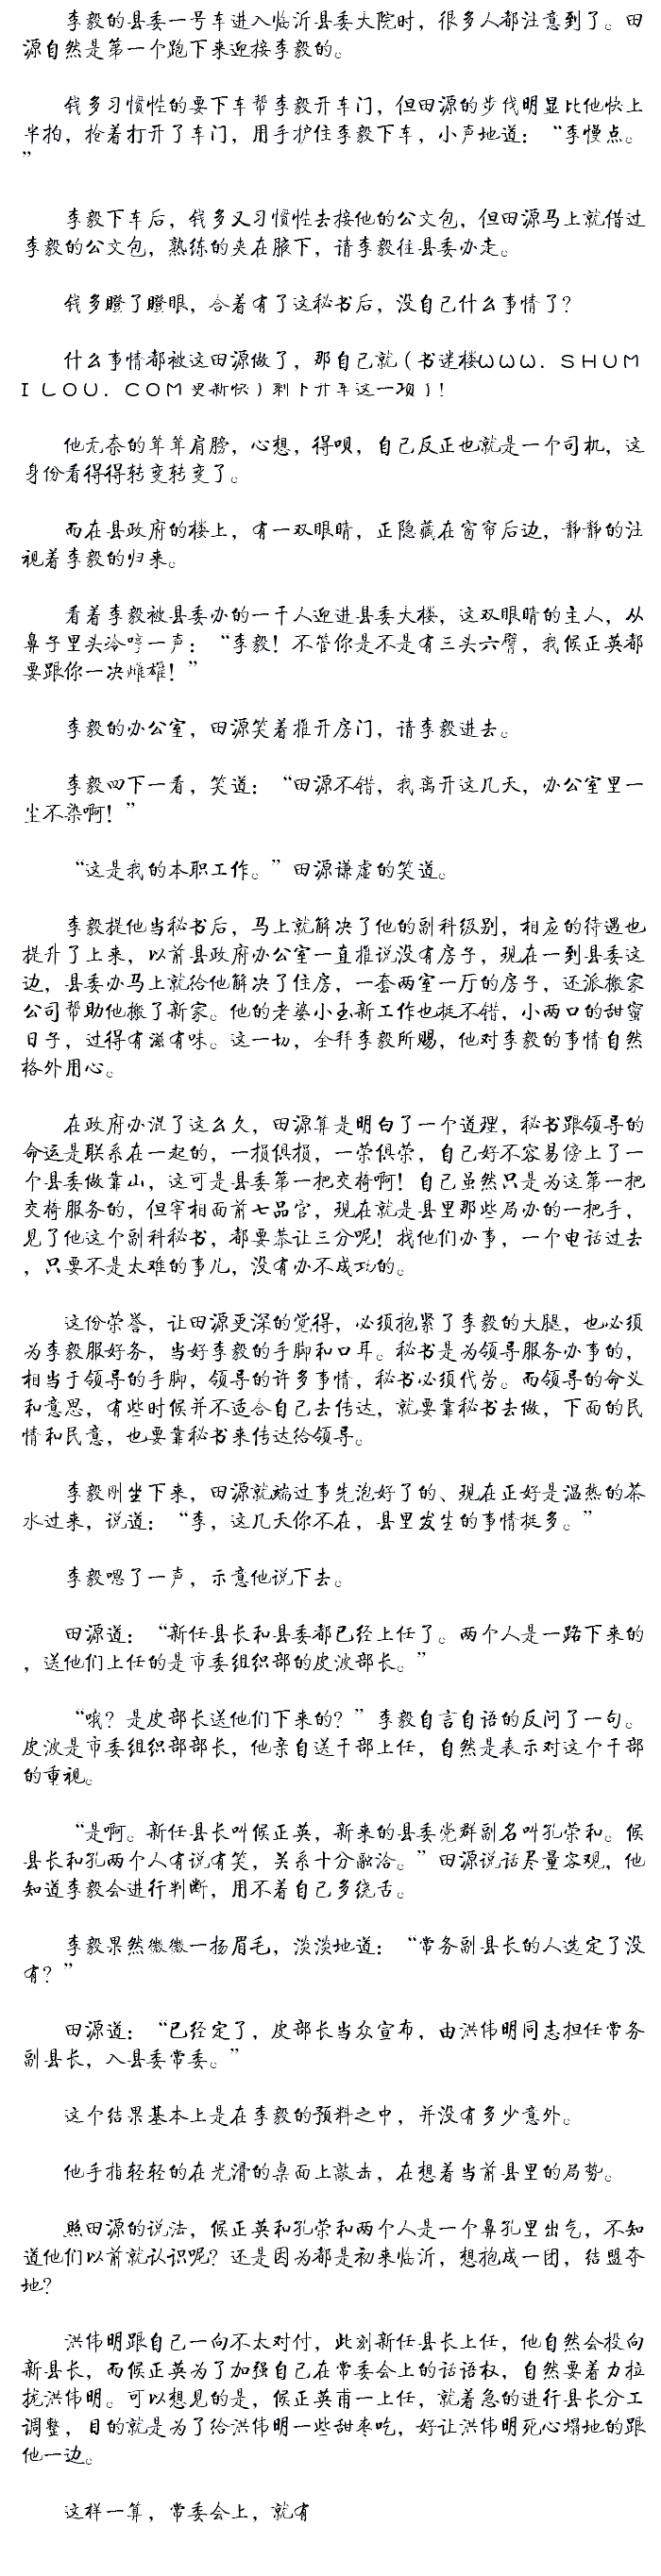 李毅的县委一号车进入临沂县委大院时，很多人都注意到了。田
源自然是第一个跑下来迎接李毅的。
钱多习惯性的要下车帮李毅开车门，但田源的步伐明显比他快上
半拍，抢着打开了车门，用手护住李毅下车，小声地道：“李慢点。
”
李毅下车后，钱多又习惯性去接他的公文包，但田源马上就借过
李毅的公文包，熟练的夹在腋下，请李毅往县委办走。
钱多瞪了瞪眼，合着有了这秘书后，没自己什么事情了？
什么事情都被这田源做了，那自己就（书迷楼ＷＷＷ．ＳＨＵＭ
ＩＬＯＵ．ＣＯＭ更新快）剩下开车这一项了！
他无奈的耸耸肩膀，心想，得呗，自己反正也就是一个司机，这
身份看得得转变转变了。
而在县政府的楼上，有一双眼睛，正隐藏在窗帘后边，静静的注
视着李毅的归来。
看着李毅被县委办的一干人迎进县委大楼，这双眼睛的主人，从
鼻子里头冷哼一声：“李毅！不管你是不是有三头六臂，我候正英都
要跟你一决雌雄！”
李毅的办公室，田源笑着推开房门，请李毅进去。
李毅四下一看，笑道：“田源不错，我离开这几天，办公室里一
尘不染啊！”
“这是我的本职工作。”田源谦虚的笑道。
李毅提他当秘书后，马上就解决了他的副科级别，相应的待遇也
提升了上来，以前县政府办公室一直推说没有房子，现在一到县委这
边，县委办马上就给他解决了住房，一套两室一厅的房子，还派搬家
公司帮助他搬了新家。他的老婆小玉新工作也挺不错，小两口的甜蜜
日子，过得有滋有味。这一切，全拜李毅所赐，他对李毅的事情自然
格外用心。
在政府办混了这么久，田源算是明白了一个道理，秘书跟领导的
命运是联系在一起的，一损俱损，一荣俱荣，自己好不容易傍上了一
个县委做靠山，这可是县委第一把交椅啊！自己虽然只是为这第一把
交椅服务的，但宰相面前七品官，现在就是县里那些局办的一把手，
见了他这个副科秘书，都要恭让三分呢！找他们办事，一个电话过去
，只要不是太难的事儿，没有办不成功的。
这份荣誉，让田源更深的觉得，必须抱紧了李毅的大腿，也必须
为李毅服好务，当好李毅的手脚和口耳。秘书是为领导服务办事的，
相当于领导的手脚，领导的许多事情，秘书必须代劳。而领导的命义
和意思，有些时候并不适合自己去传达，就要靠秘书去做，下面的民
情和民意，也要靠秘书来传达给领导。
李毅刚坐下来，田源就端过事先泡好了的、现在正好是温热的茶
水过来，说道：“李，这几天你不在，县里发生的事情挺多。”
李毅嗯了一声，示意他说下去。
田源道：“新任县长和县委都已经上任了。两个人是一路下来的
，送他们上任的是市委组织部的皮波部长。”
“哦？是皮部长送他们下来的？”李毅自言自语的反问了一句。
皮波是市委组织部部长，他亲自送干部上任，自然是表示对这个干部
的重视。
“是啊。新任县长叫候正英，新来的县委党群副名叫孔荣和。候
县长和孔两个人有说有笑，关系十分融洽。”田源说话尽量客观，他
知道李毅会进行判断，用不着自己多绕舌。
李毅果然微微一扬眉毛，淡淡地道：“常务副县长的人选定了没
有？”
田源道：“已经定了，皮部长当众宣布，由洪伟明同志担任常务
副县长，入县委常委。”
这个结果基本上是在李毅的预料之中，并没有多少意外。
他手指轻轻的在光滑的桌面上敲击，在想着当前县里的局势。
照田源的说法，候正英和孔荣和两个人是一个鼻孔里出气，不知
道他们以前就认识呢？还是因为都是初来临沂，想抱成一团，结盟夺
地？
洪伟明跟自己一向不太对付，此刻新任县长上任，他自然会投向
新县长，而候正英为了加强自己在常委会上的话语权，自然要着力拉
拢洪伟明。可以想见的是，候正英甫一上任，就着急的进行县长分工
调整，目的就是为了给洪伟明一些甜枣吃，好让洪伟明死心塌地的跟
他一边。
这样一算，常委会上，就有